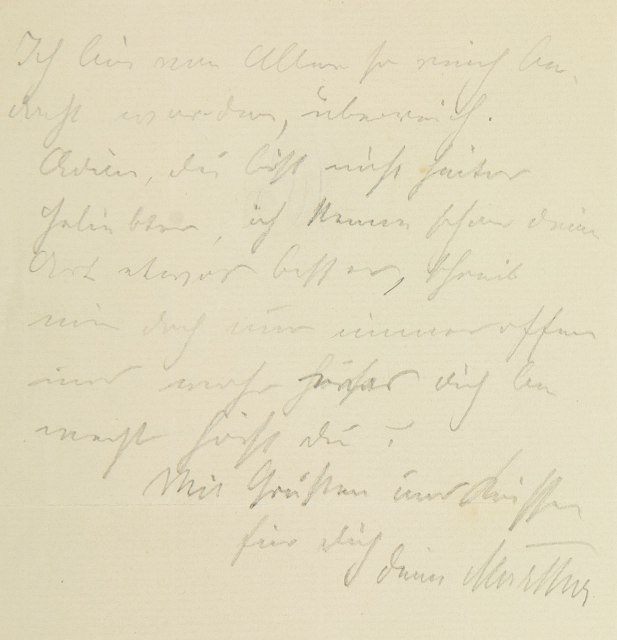 Ich bin von Allen so reich be-
dacht worden, überreich.
Adieu, du bist nicht heiter
Geliebter, ich kenne schon deine
Art etwas besser, schreib
mir doch nur immer offen
und mehr dich be
hörst du?
Mit Grüßen und Küssen
für dich
deine Martha